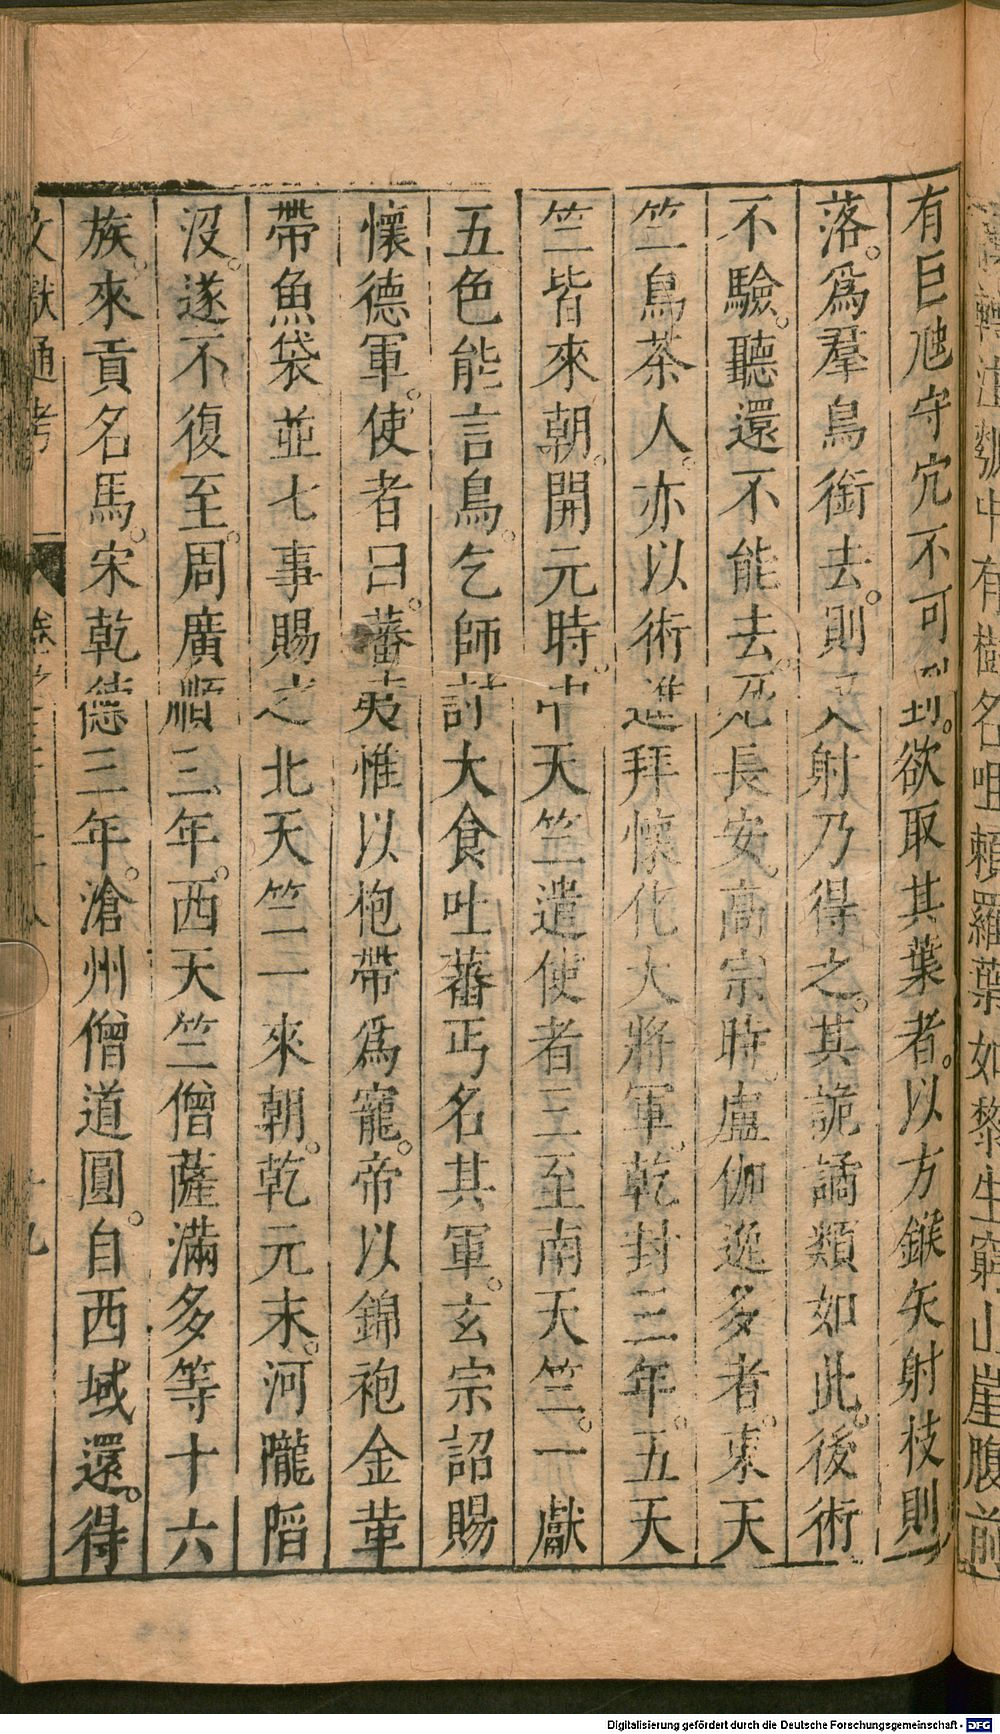 有巨虺守穴不可到。欲取其葉者。以方鏃矢射枝則
落。爲羣鳥銜去。則又射乃得之。其詭譎類如此。後術
不驗。聽還不能去。死長安。高宗時。盧伽逸多者。東天
竺烏茶人。亦以術進拜懷化大將軍。乾封三年。五天
竺皆來朝。開元時。中天竺遣使者三至南天竺。一獻
五色能言鳥。乞師討大食吐蕃丐名其軍。玄宗詔賜
懷德軍。使者曰。蕃夷惟以袍帶爲寵。帝以錦袍金革
帶魚袋並七事賜之北天竺一來朝。乾元末。河隴陷
沒。遂不復至。周廣順三年。西天竺僧薩滿多等十六
族。來貢名馬。宋乾德三年。滄州僧道圓。自西域還。得
文獻通考
十九
Digitalisierung gefördert durch die Deutsche Forschungsgemeinschaft - DFG